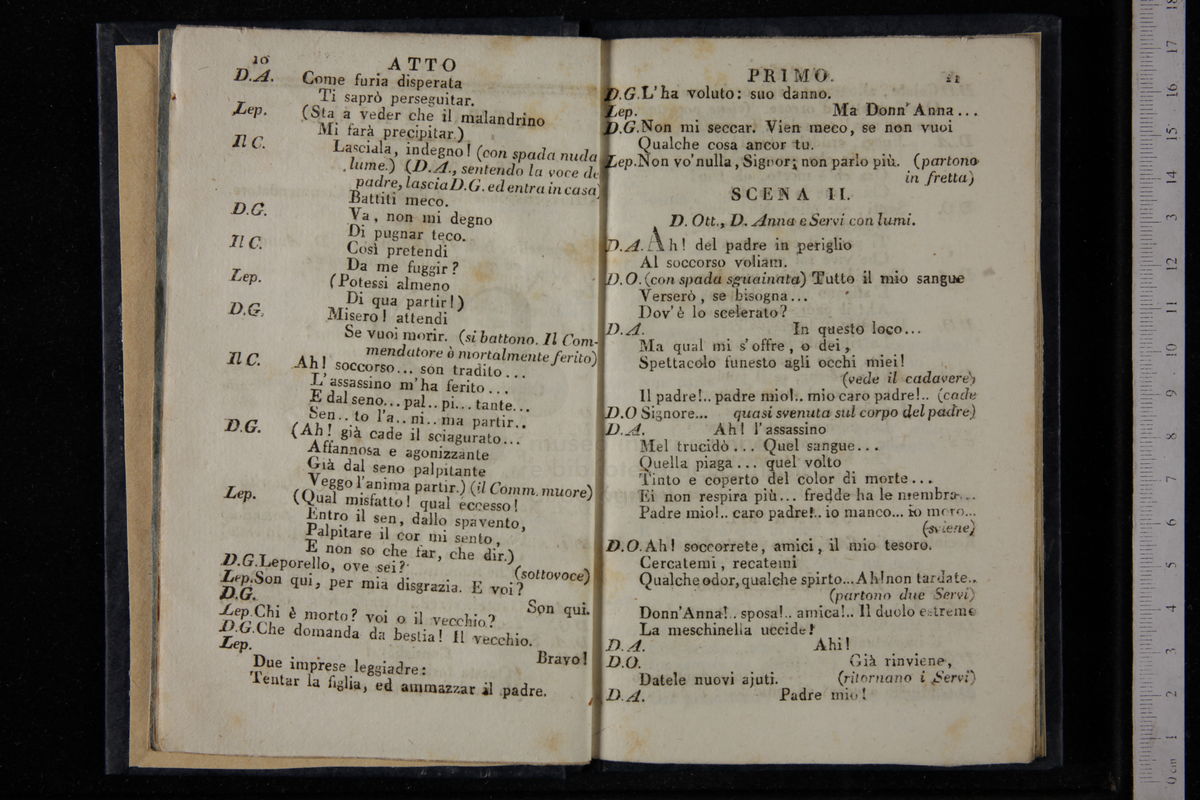 10
ATTO
D.A. Come furia disperata
Ti saprò perseguitar.
Lep. (Sta a veder che il malandrino
Mi farà precipitar.)
Il C. Lasciala, indegno! (con spada nuda
lume.) (D.A., sentendo la voce de
padre, lascia D.G. ed entra in casa)
Battiti meco.
D.G. Va, non mi degno
Di pugnar teco.
Il C. Così pretendi
Da me fuggir?
Lep. (Potessi almeno
Di qua partir!)
D.G. Misero! attendi
Se vuoi morir. (si battono. Il Com-
mendatore è mortalmente ferito)
Il C. Ah! soccorso... son tradito...
L'assassino m'ha ferito...
E dal seno... pal.. pi... tante...
Sen.. to l'a.. ni.. ma partir..
D.G. (Ah! già cade il sciagurato...
Affannosa e agonizzante
Già dal seno palpitante
Veggo l'anima partir.) (il Comm. muore)
Lep. (Qual misfatto! qual eccesso!
Entro il sen, dallo spavento,
Palpitare il cor mi sento,
E non so che far, che dir.)
D.G. Leporello, ove sei? (sottovoce)
Lep. Son qui, per mia disgrazia. E voi?
D.G. Son qui.
Lep. Chi è morto? voi o il vecchio?
D.G. Che domanda da bestia! Il vecchio.
Lep. Bravo!
Due imprese leggiadre:
Tentar la figlia, ed ammazzar il padre.
PRIMO.
11
D.G. L'ha voluto: suo danno.
Lep. Ma Donn'Anna...
D.G. Non mi seccar. Vien meco, se non vuoi
Qualche cosa ancor tu.
Lep. Non vo' nulla, Signor; non parlo più. (partono
in fretta)
SCENA II.
D. Ott., D. Anna e Servi con lumi.
D.A. Ah! del padre in periglio
Al soccorso voliam.
D.O. (con spada sguainata) Tutto il mio sangue
Verserò, se bisogna...
Dov'è lo scelerato?
D.A. In questo loco...
Ma qual mi s'offre, o dei,
Spettacolo funesto agli occhi miei!
(vede il cadavere)
Il padre!.. padre mio!.. mio caro padre!.. (cade
D.O Signore... quasi svenuta sul corpo del padre)
D.A. Ah! l'assassino
Mel trucidò... Quel sangue...
Quella piaga... quel volto
Tinto e coperto del color di morte...
Ei non respira più... fredde ha le membra...
Padre mio!.. caro padre!.. io manco... io moro...
(sviene)
D.O. Ah! soccorrete, amici, il mio tesoro.
Cercatemi, recatemi
Qualche odor, qualche spirto... Ah! non tardate..
(partono due Servi)
Donn'Anna!.. sposa!.. amica!.. Il duolo estremo
La meschinella uccide!
D.A. Ahi!
D.O. Già rinviene,
Datele nuovi ajuti. (ritornano i Servi)
D.A. Padre mio!
0 cm 1 2 3 4 5 6 7 8 9 10 11 12 13 14 15 16 17 18